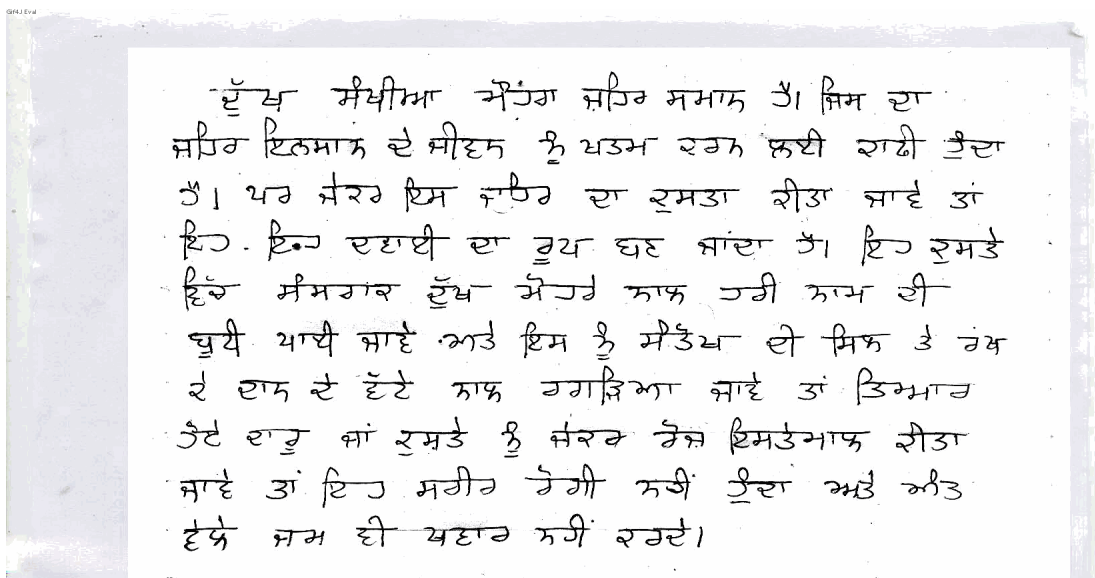 Gif4J Eval
ਦੁੱਖ ਸੰਖੀਆ ਮੌਹਰਾ ਜ਼ਹਿਰ ਸਮਾਨ ਹੈ। ਜਿਸ ਦਾ
ਜ਼ਹਿਰ ਇਨਸਾਨ ਦੇ ਜੀਵਨ ਨੂੰ ਖਤਮ ਕਰਨ ਲਈ ਕਾਫੀ ਹੁੰਦਾ
ਹੈ। ਪਰ ਜੇਕਰ ਇਸ ਜ਼ਹਿਰ ਦਾ ਕੁਸਤਾ ਕੀਤਾ ਜਾਵੇ ਤਾਂ
ਇਹ. ਦਵਾਈ ਦਾ ਰੂਪ ਬਣ ਜਾਂਦਾ ਹੈ। ਇਹ ਕੁਸਤੇ
ਵਿੱਚ ਸੰਸਾਰਕ ਦੁੱਖ ਮੋਹਰੇ ਨਾਲ ਹਰੀ ਨਾਮ ਦੀ
ਬੂਟੀ ਪਾਈ ਜਾਵੇ ਅਤੇ ਇਸ ਨੂੰ ਸੰਤੋਖ ਦੀ ਸਿਲ ਤੇ ਰੱਖ
ਕੇ ਦਾਨ ਦੇ ਵੱਟੇ ਨਾਲ ਰਗੜਿਆ ਜਾਵੇ ਤਾਂ ਤਿਆਰ
ਹੋਏ ਦਾਰੂ ਜਾਂ ਕੁਸ਼ਤੇ ਨੂੰ ਜੇਕਰ ਰੋਜ਼ ਇਸਤੇਮਾਲ ਕੀਤਾ
ਜਾਵੇ ਤਾਂ ਇਹ ਸਰੀਰ ਰੋਗੀ ਨਹੀਂ ਹੁੰਦਾ ਅਤੇ ਅੰਤ
ਵੇਲੇ ਜਮ ਵੀ ਖਵਾਰ ਨਹੀਂ ਕਰਦੇ।